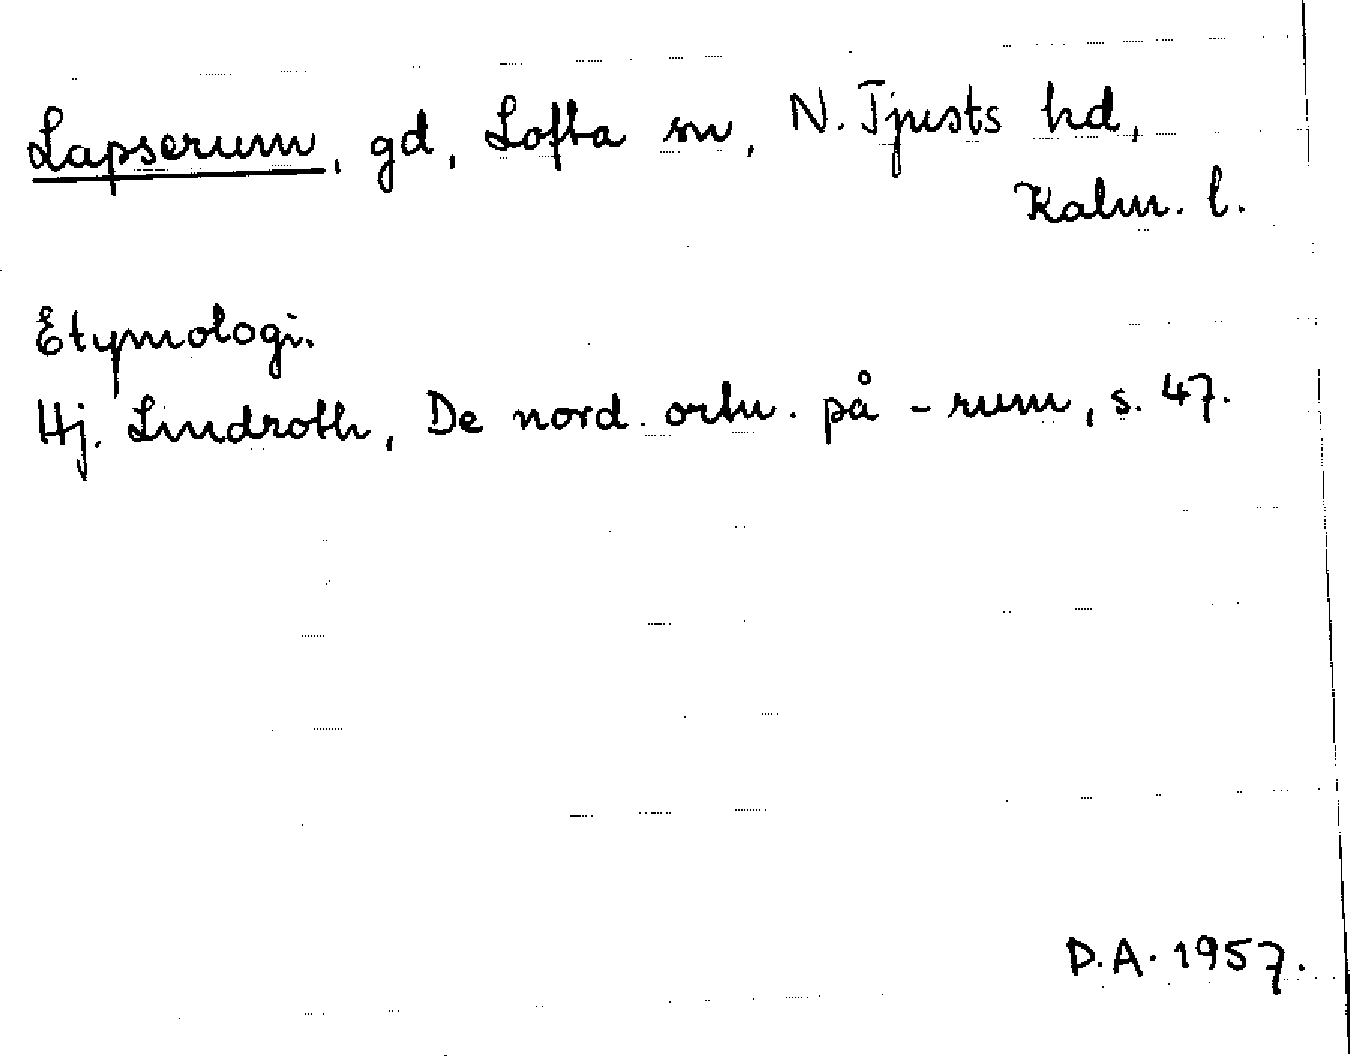 Lapserum, gd, Lofta sn, N. Tjusts hd,
Kalm. l.
Etymologi.
Hj. Lindroth, De nord. ortn. på -rum, s. 47.
D.A. 1957.